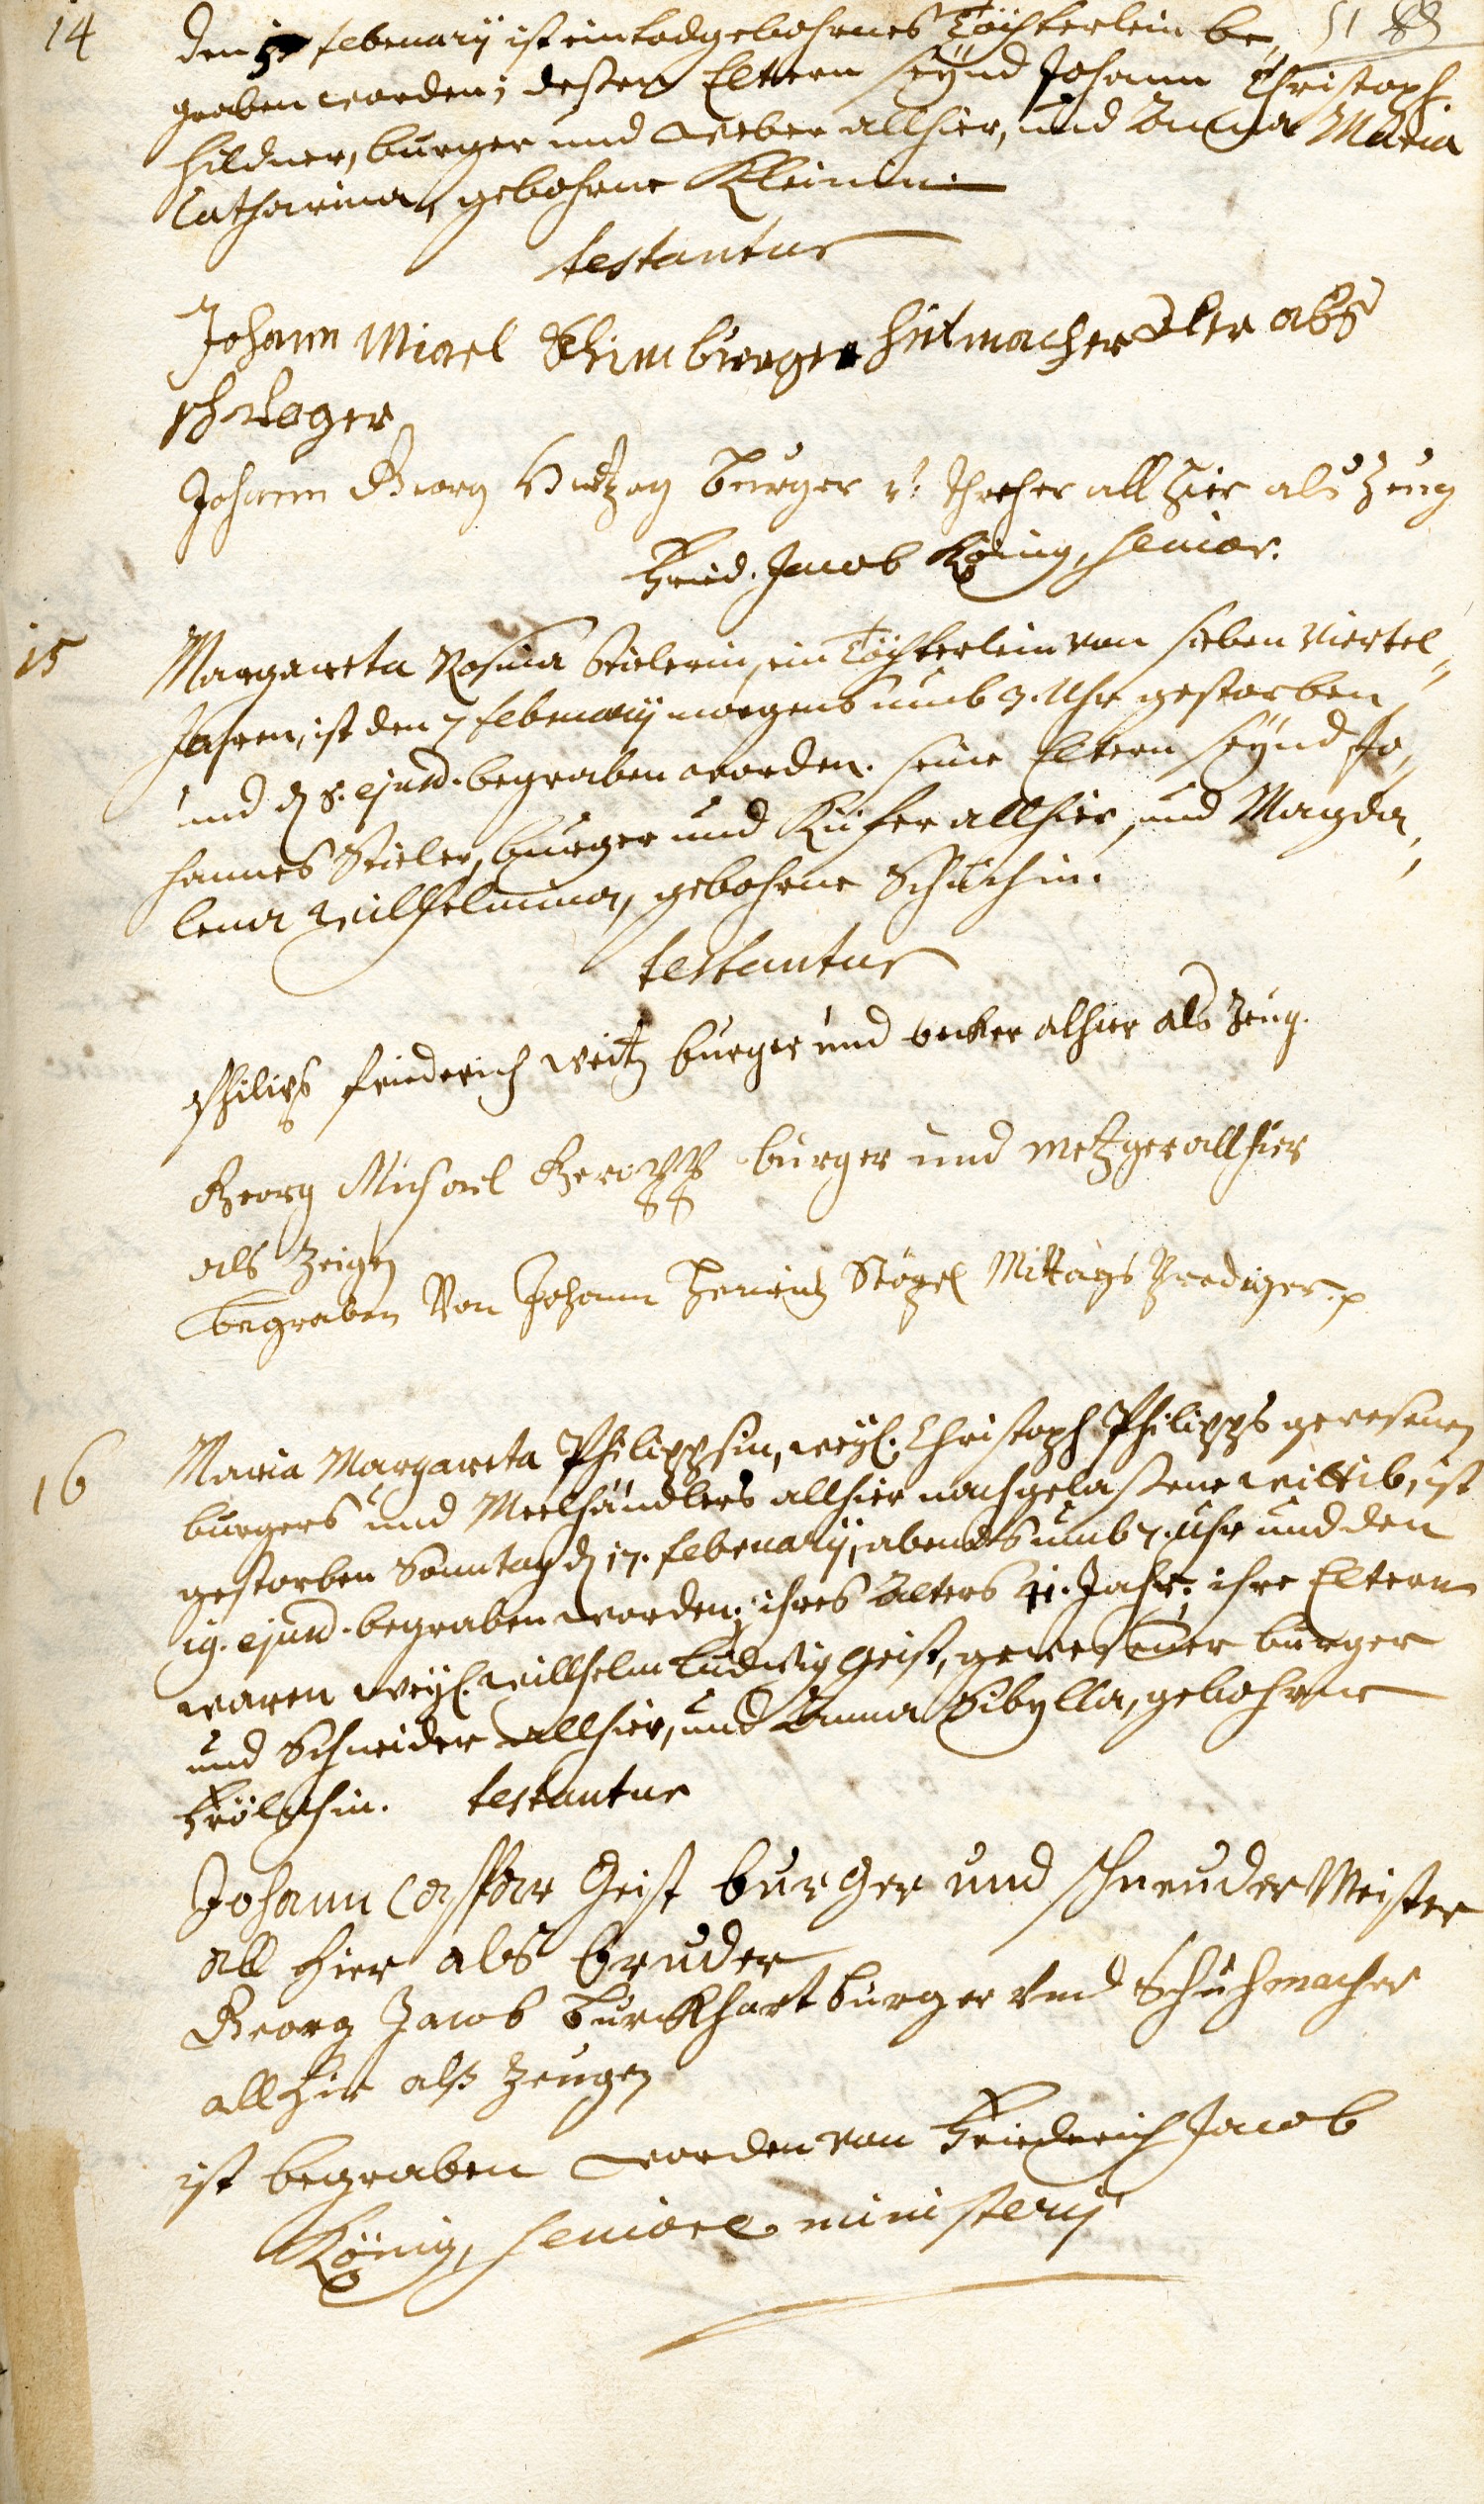 14
den 5 februarij ist ein todgebohrnes Töchterlein be„ 51
graben worden; deßen Eltern seynd Johann Christoph
Hildner, burger und weber allhier, und Anna Maria
Catharina, gebohrne Kleinin.
testantur
Johann Micael Schimburger hutmacher alls
schwager
Johann Georg Hertzog burger v: allhier als Zeug
Frid. Jacob König, senior.
15
Margareta Rosina Stielerin, ein Töchterlein von sieben viertel„
Jahren, ist den 7 februarij morgens umb 3. Uhr gestorben
und d 8. ejusd. begraben worden. seine Eltern seynd Jo„
hannes Stieler, burger und Küfer allhier, und Magda„
lena Wilhelmina, gebohrne Schuchin.
testantur
Philips friederich weitz burger und becker alhier als Zeug.
Georg Michael burger und metzger allhier
als Zeigen
begraben Von Johann Henrich Stögel Mittags Prediger.
16
Maria Margareta Philippsin, weyl. Christoph Philipps gewesenen
burgers und Meelhändlers allhier nachgelaßene wittib, ist
gestorben Sonntag d 17. februarij, abends umb 7. Uhr und den
19. ejusd. begraben worden; ihres Alters 41. Jahr; ihre Eltern
waren weyl. Willhelm Ludwig Geist, gewesener burger
und Schneider allhier, und Anna Sibylla, gebohrne
Frölichin. testantur
Johann Casspar Geist burger und schneuder Meister
all hier als bruder
Georg Jacob burckhart burger und Schuhmacher
allhie alß Zeugen
ist begraben worden von Friederich Jacob
König, seniore ministerij